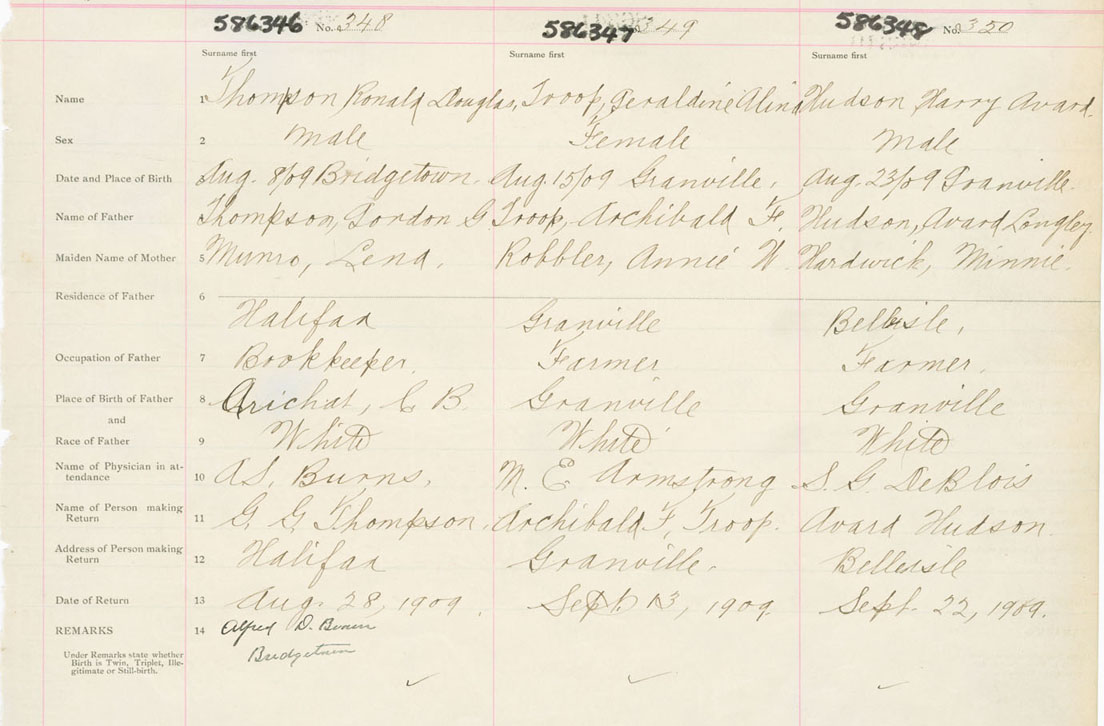 586346 No. 348 586347 349 586348 No. 350
Surname first Surname first Surname first
Name 1 Thompson Ronald Douglas, Troop, Geraldine Alina Hudson Harry Avard.
Sex 2 Male Female Male
Date and Place of Birth Aug. 8/09 Bridgetown. Aug. 15/09 Granville. Aug. 23/09 Granville.
Name of Father 4 Thompson, Gordon G. Troop, Archibald F. Hudson, Avard Longley.
Maiden Name of Mother 5 Munro, Lena. Robbler, Annie W. Hardwick, Minnie.
Residence of Father 6
Halifax Granville Belleisle,
Occupation of Father 7 Bookkeeper. Farmer Farmer.
Place of Birth of Father 8 Arichat, C B. Granville Granville
and
Race of Father 9 White White White
Name of Physician in at-
tendance 10 A S. Burns, M. E Armstrong S. G. DeBlois
Name of Person making
Return 11 G. G. Thompson. Archibald F. Troop. Avard Hudson.
Address of Person making
Return 12 Halifax Granville. Belleisle
Date of Return 13 Aug. 28, 1909. Sept. 13, 1909. Sept. 22, 1909.
REMARKS 14 Alfred D.
Under Remarks state whether Bridgetown
Birth is Twin, Triplet, Ille-
gitimate or Still-birth.